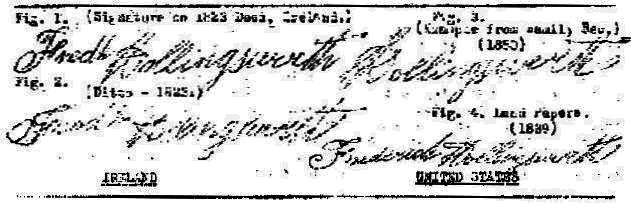 Fig. 1. (Signature on 1823 Deed, Ireland.)
Fredk Hollingsworth
Fig. 2.
(Ditto - 1823.)
Fredk Hollingsworth
IRELAND
Fig. 3.
(Sample from family Rec.)
(1850)
Hollingsworth
Fig. 4. Land Papers.
(1839)
Frederick Hollingsworth
UNITED STATES